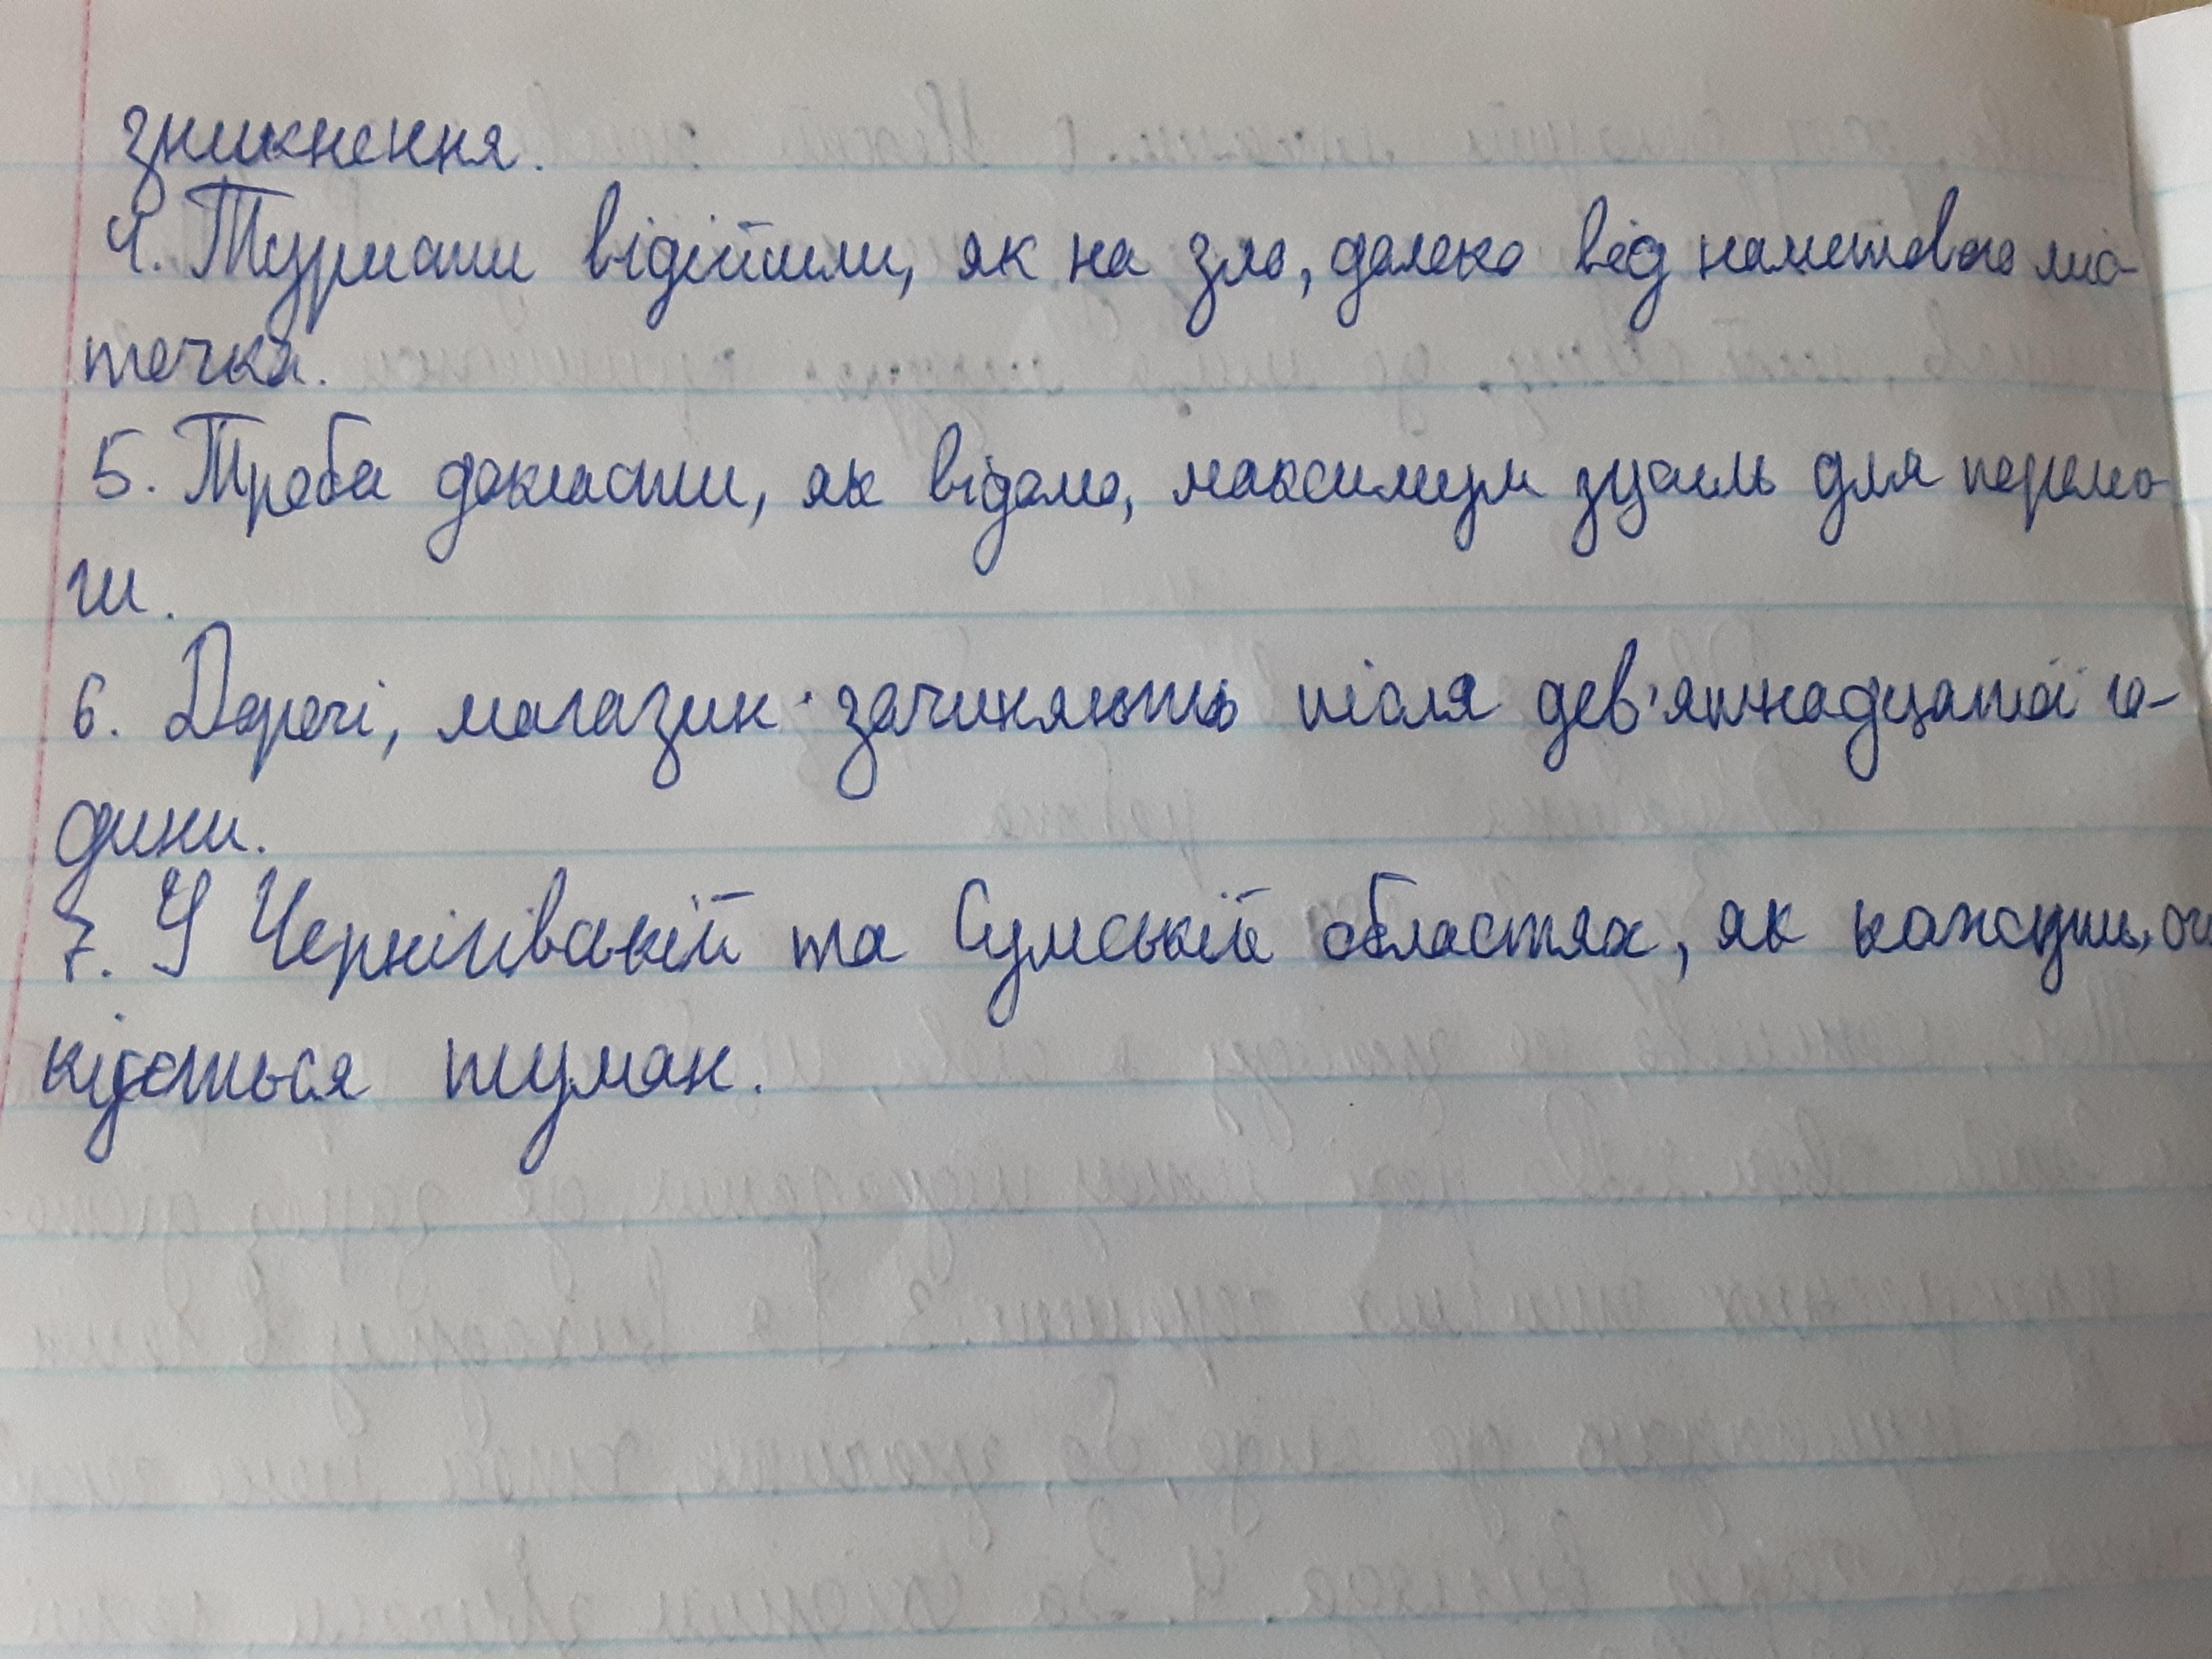 зникнення.
4. Туристи відійшли, як на зло, далеко від наметового міс-
течка.
5. Треба докласти, як відомо, максимум зусиль для перемо-
ги.
6. Доречі, магазин зачиняють після дев'ятнадцятої го-
дини.
7. У Чернігівській та Сумській областях, як кажуть, очі
кується туман.